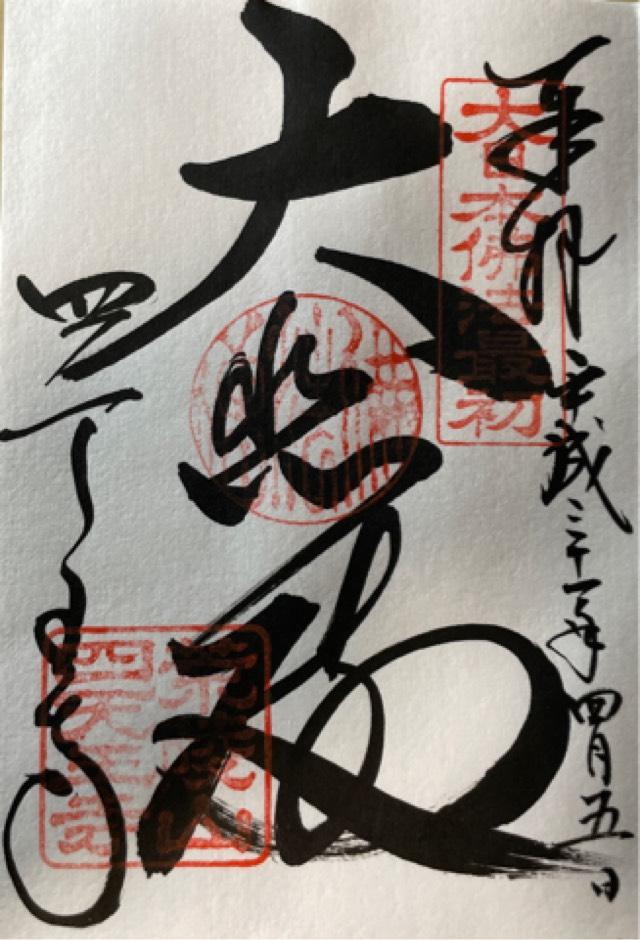 奉拝 平成三十一年四月五日
大日本佛法最初
大悲殿
四天王寺
荒陵山
四天王寺